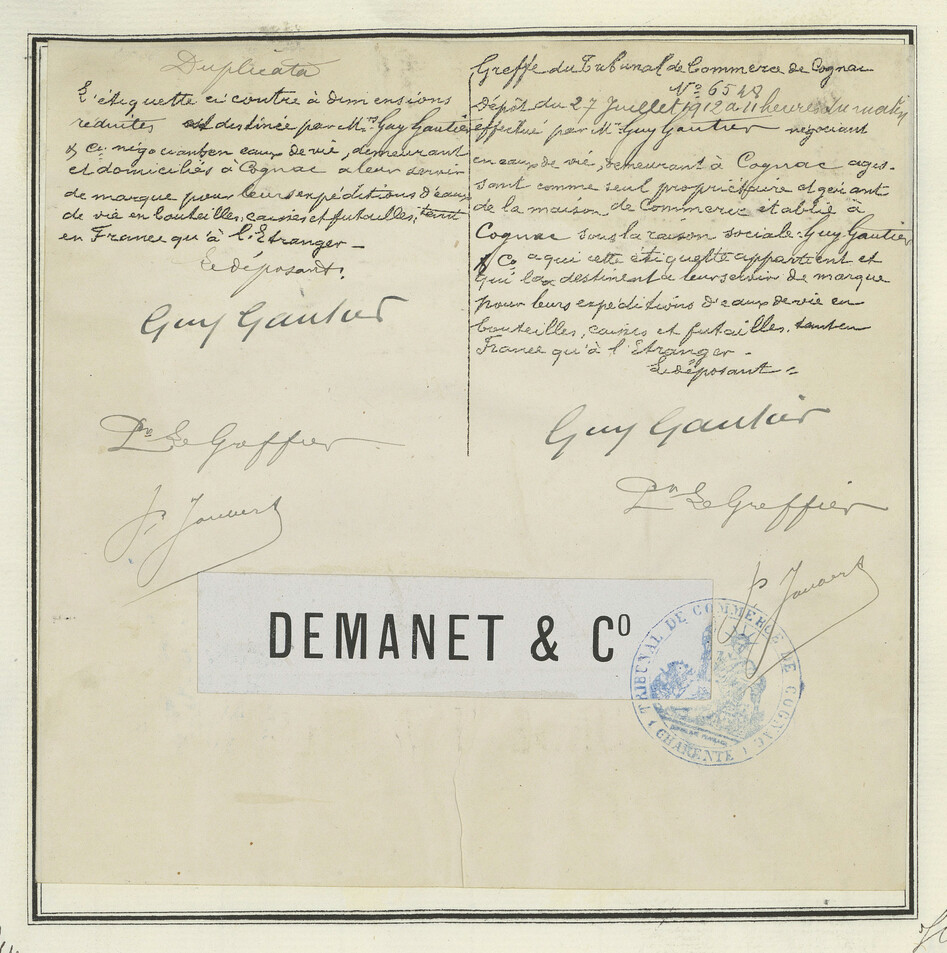 Duplicata
L'étiquette ci contre à dimensions
réduites est destinée par M.rs Guy Gautier
& Co négociants en eaux de vie, demeurant
et domiciliés à Cognac a leur servir
de marque pour leurs expéditions d'eaux
de vie en bouteilles, caisses et futailles, tant
en France qu'à l'Etranger_
Le déposant.
Guy Gautier
Le Greffier
P. Joubert
Greffe du Tribunal de Commerce de Cognac
No 6548
Dépôt du 27 Juillet 1912 à 11 heures du matin
effectué par Mr Guy Gautier négociant
en eaux de vie, demeurant à Cognac agis-
sant comme seul propriétaire et gérant
de la maison de Commerce établie à
Cognac sous la raison sociale Guy Gautier
& Co a qui cette étiquette appartient et
qui la destinent a leur servir de marque
pour leurs expéditions d'eaux de vie en
bouteilles, caisses et futailles, tant en
France qu'à l'Etranger_
Le déposant
Guy Gautier
Le Greffier
P. Joubert
DEMANET & Co
TRIBUNAL DE COMMERCE DE COGNAC
CHARENTE